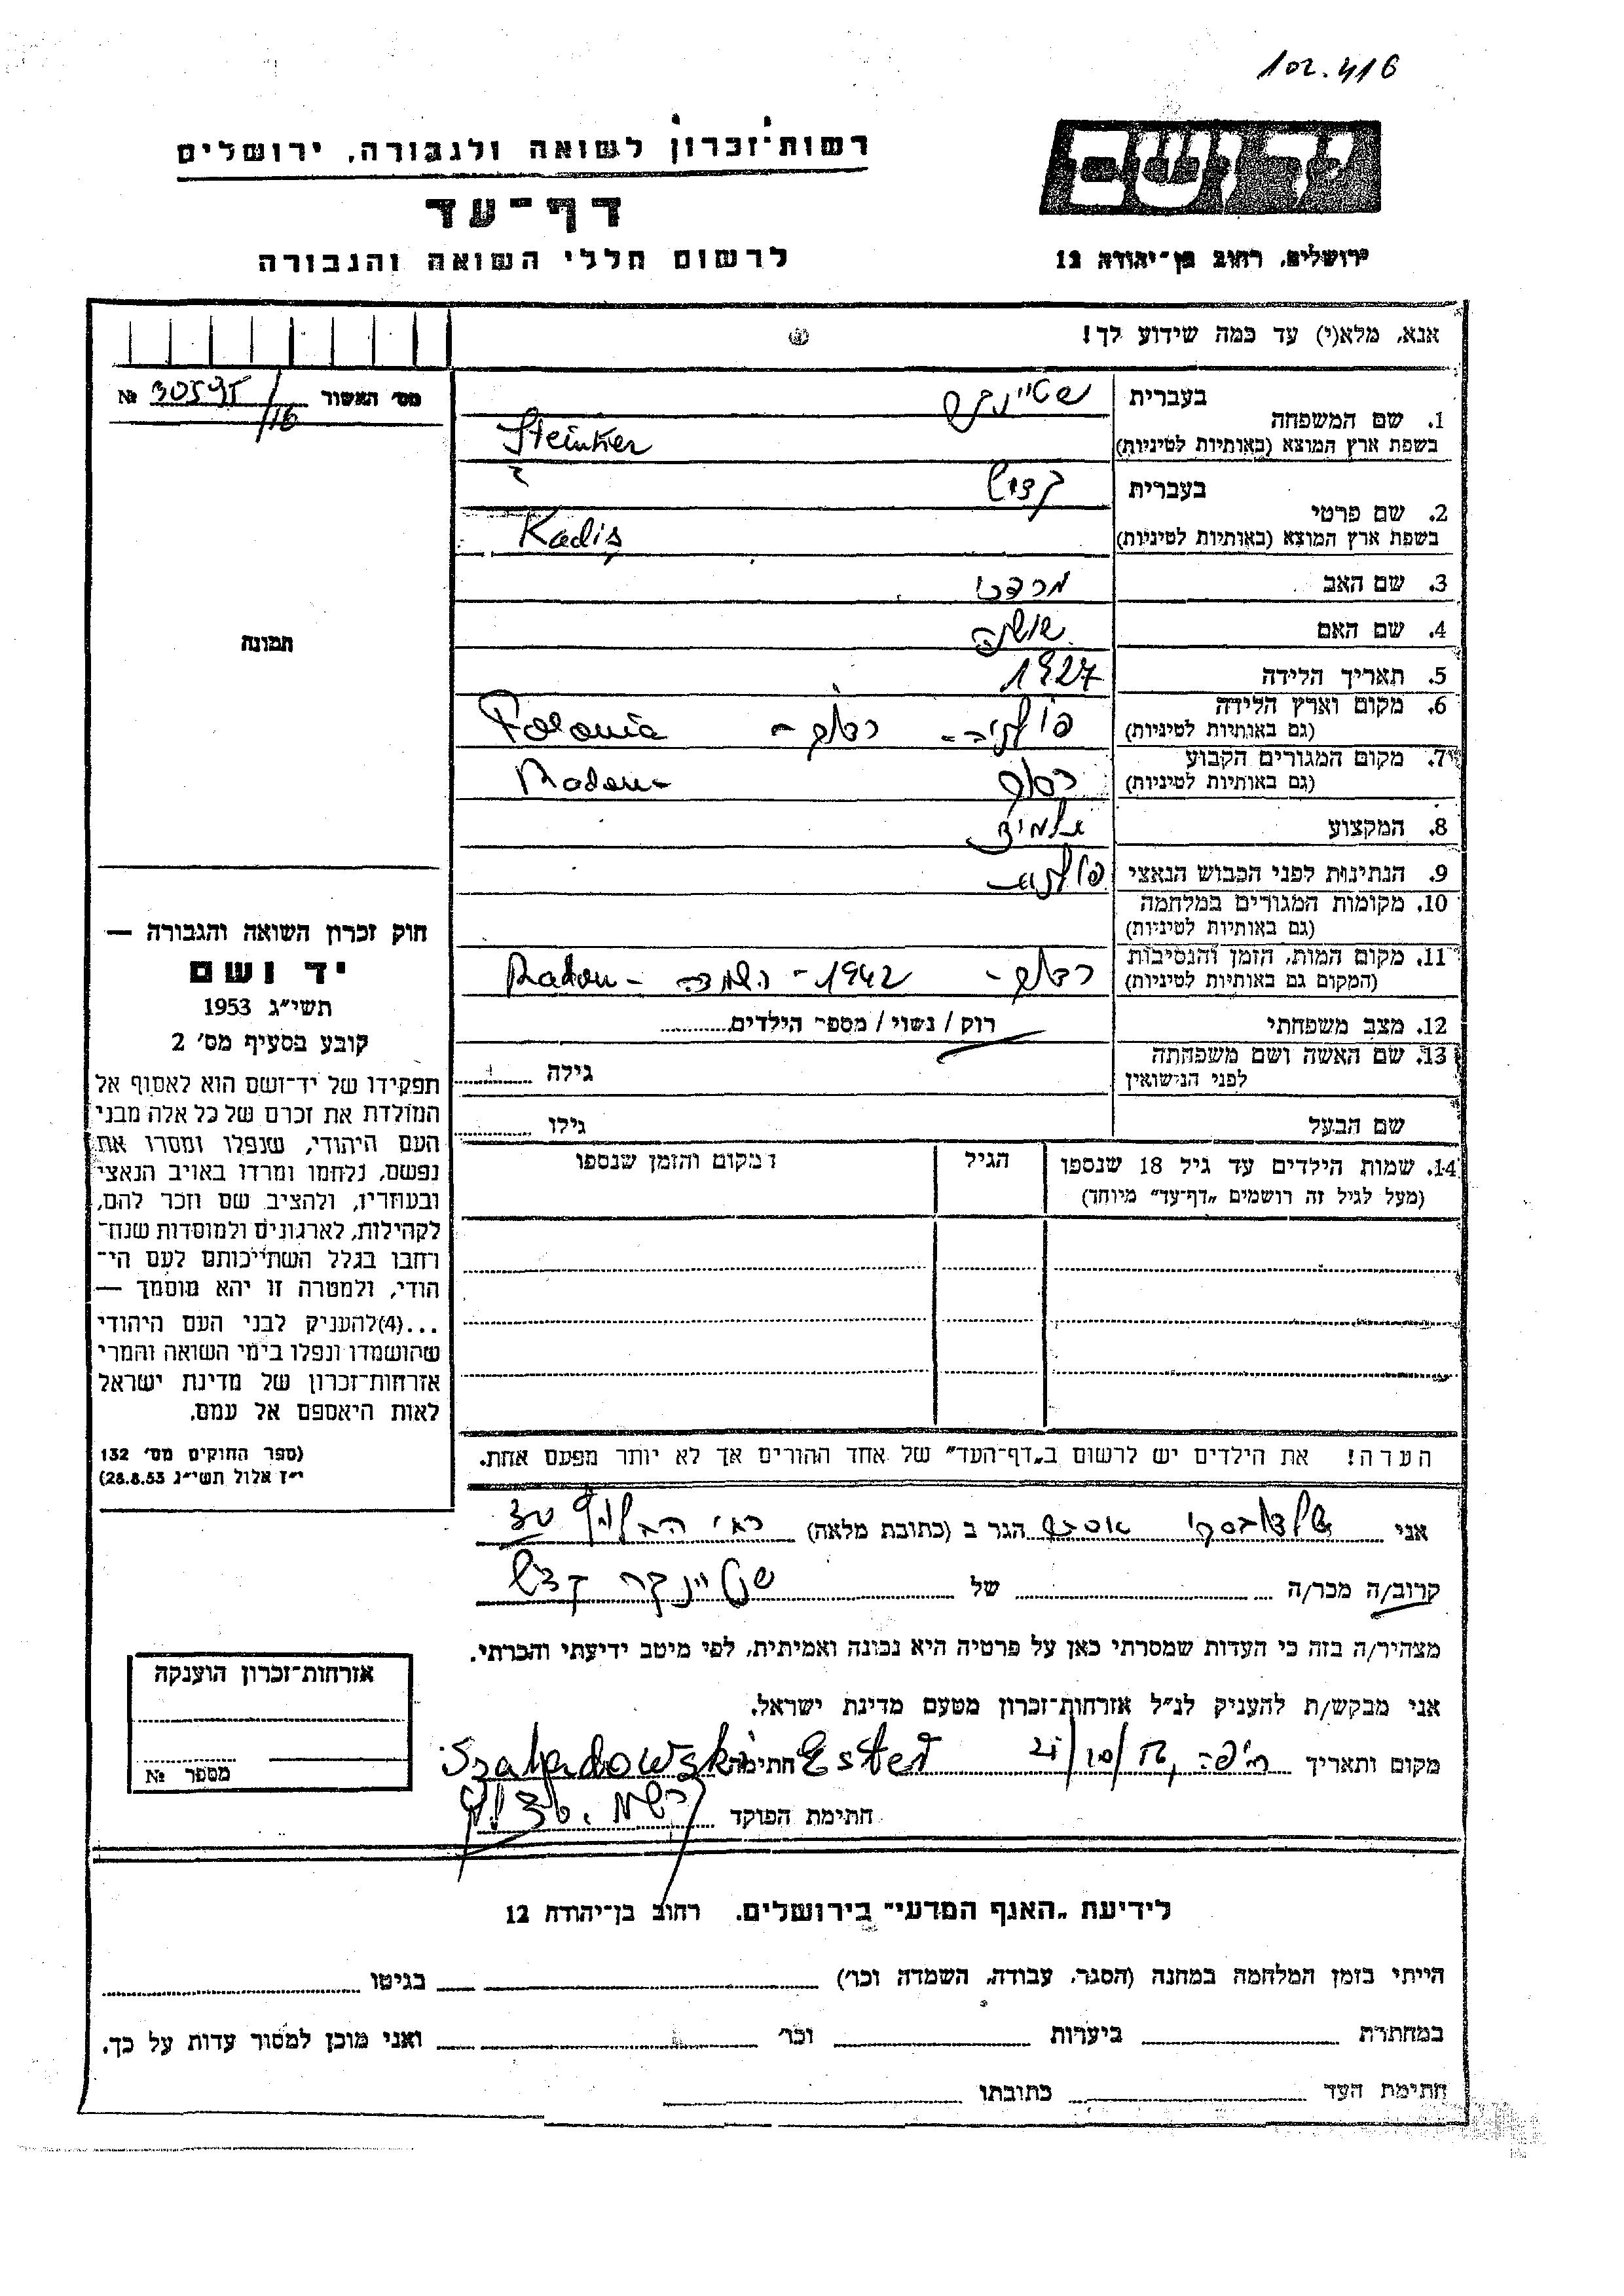 102.416
רשות־זכרון לשואה ולגבורה, ירושלים
ידושם
דף־עד
לרשום חללי השואה והגבורה
ירושלים, רחוב בן־יהודה 12
אנא, מלא(י) עד כמה שידוע לך!
מס׳ האשור № 30595/16
1. שם המשפחה
בעברית שטיינקר
בשפת ארץ המוצא (באותיות לטיניות) Steinker
2. שם פרטי
בעברית קדיש
בשפת ארץ המוצא (באותיות לטיניות) Kadiş
3. שם האב מרדכי
4. שם האם שושנה
5. תאריך הלידה 1927
6. מקום וארץ הלידה
(גם באותיות לטיניות) פולניה - רדום - Polonia
7. מקום המגורים הקבוע
(גם באותיות לטיניות) רדום Radom -
8. המקצוע תלמיד
9. הנתינות לפני הכבוש הנאצי פולנית
10. מקומות המגורים במלחמה
(גם באותיות לטיניות)
11. מקום המות, הזמן והנסיבות
(המקום גם באותיות לטיניות) רדום - 1942 - השמדה Radom -
12. מצב משפחתי רוק / נשוי / מספר הילדים
13. שם האשה ושם משפחתה
לפני הנישואין גילה
שם הבעל גילו
14. שמות הילדים עד גיל 18 שנספו הגיל מקום והזמן שנספו
(מעל לגיל זה רושמים „דף־עד” מיוחד)
הערה! את הילדים יש לרשום ב„דף־העד” של אחד ההורים אך לא יותר מפעם אחת.
תמונה
חוק זכרון השואה והגבורה —
יד ושם
תשי״ג 1953
קובע בסעיף מס׳ 2
תפקידו של יד־ושם הוא לאסוף אל
המולדת את זכרם של כל אלה מבני
העם היהודי, שנפלו ומסרו את
נפשם, נלחמו ומרדו באויב הנאצי
ובעוזריו, ולהציב שם וזכר להם,
לקהילות, לארגונים ולמוסדות שנח־
רחבו בגלל השתייכותם לעם הי־
הודי, ולמטרה זו יהא מוסמך —
...(4)להעניק לבני העם היהודי
שהושמדו ונפלו בימי השואה והמרי
אזרחות־זכרון של מדינת ישראל
לאות היאספם אל עמם.
(ספר החוקים מס׳ 132
י״ז אלול תשי״ג 28.8.53)
אני אסתר הגר ב (כתובת מלאה)
קרוב/ה מכר/ה של שטיינקר קדיש
מצהיר/ה בזה כי העדות שמסרתי כאן על פרטיה היא נכונה ואמיתית, לפי מיטב ידיעתי והכרתי.
אני מבקש/ת להעניק לנ״ל אזרחות־זכרון מטעם מדינת ישראל.
מקום ותאריך חיפה, חתימה Ester
חתימת הפוקד
אזרחות־זכרון הוענקה
מספר №
לידיעת „האגף המדעי” בירושלים. רחוב בן־יהודה 12
הייתי בזמן המלחמה במחנה (הסגר, עבודה, השמדה וכו׳) בגיטו
במחתרת ביערות וכו׳ ואני מוכן למסור עדות על כך.
חתימת העד כתובתו